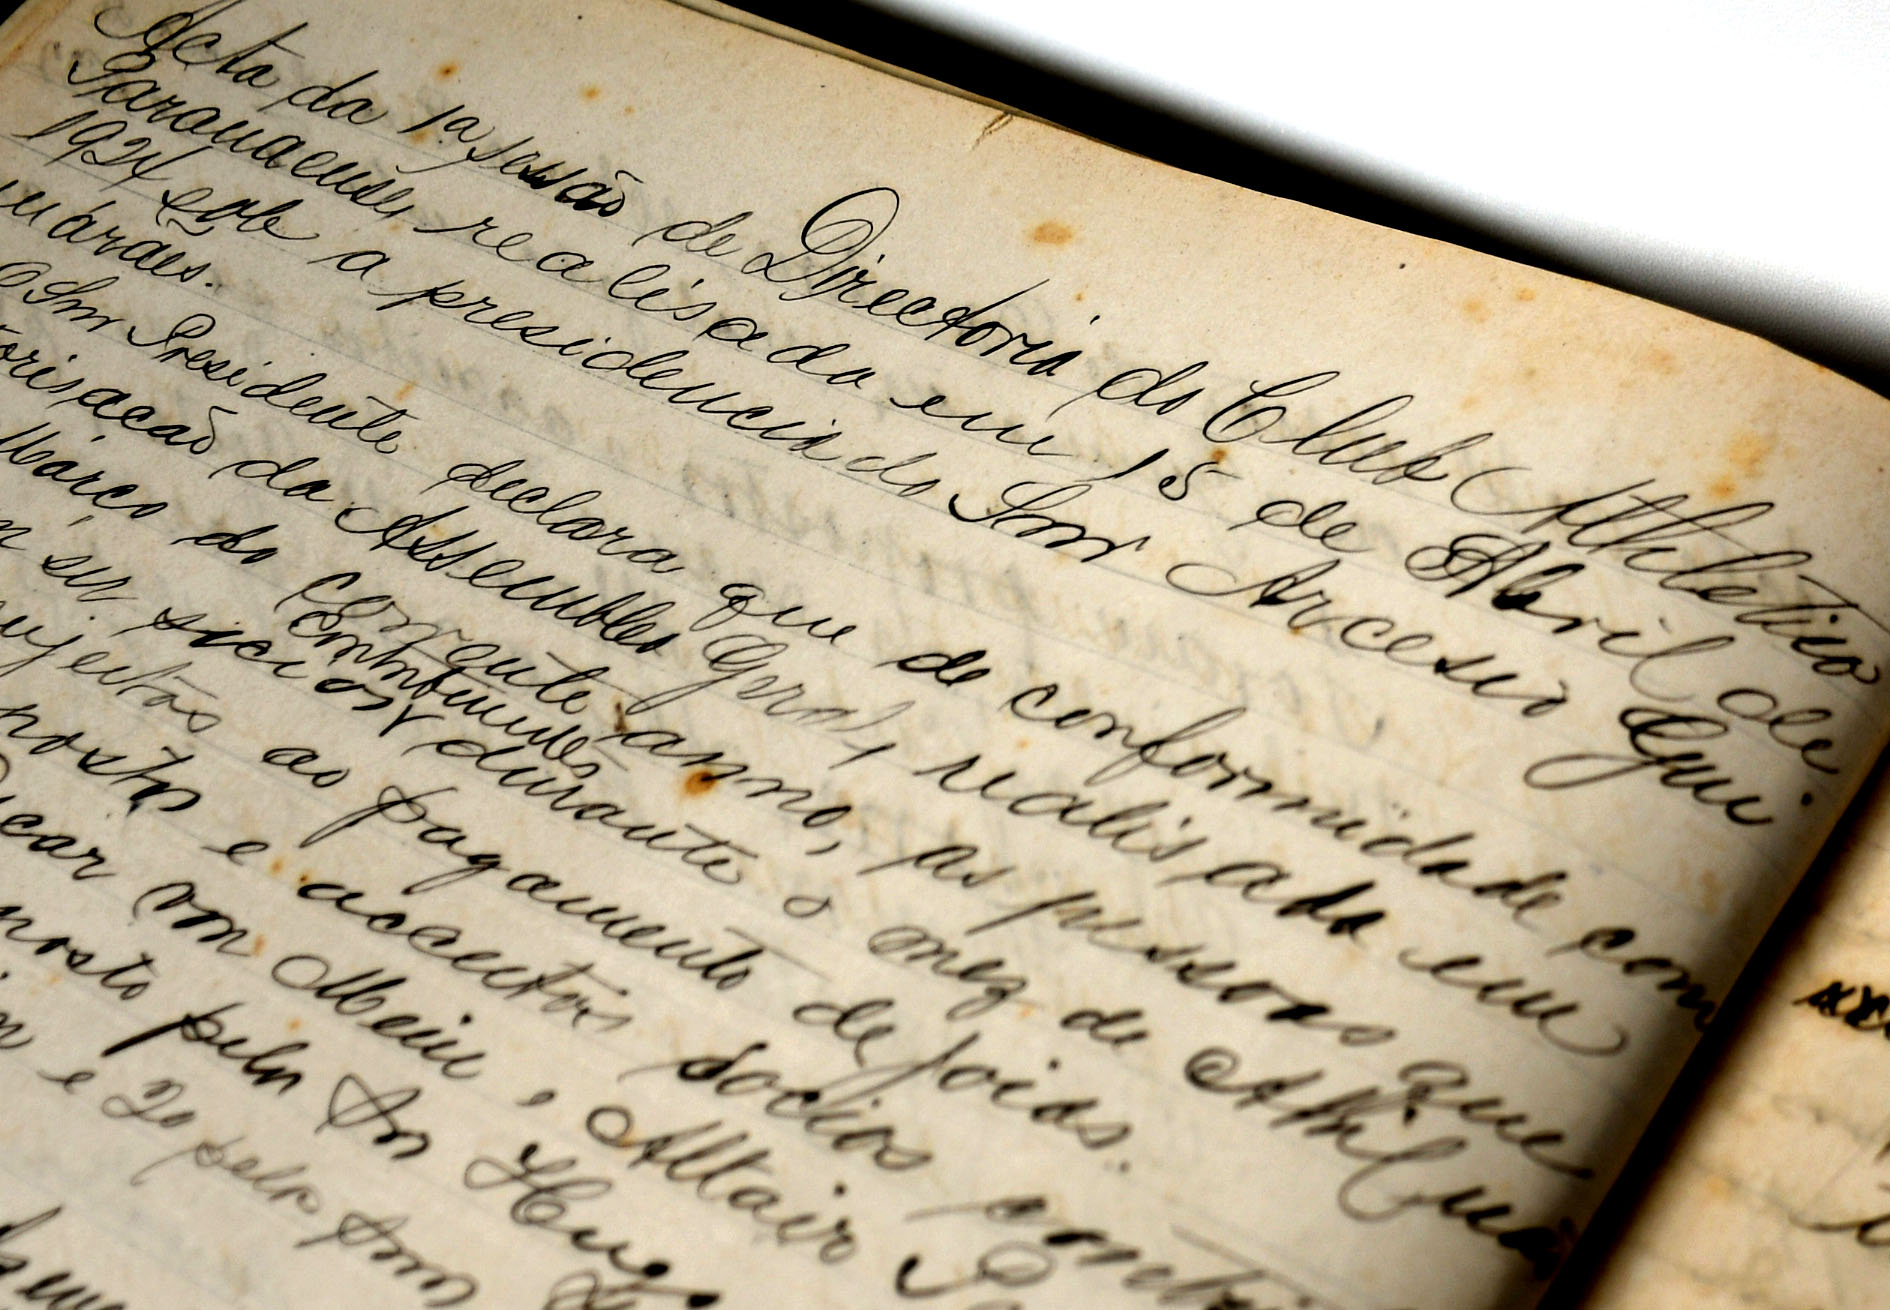 Acta da 1ª sessão de Directoria do Club Athletico
Paranaense, realisada em 15 de Abril de
1924 sob a presidencia do Snr Arcesio Gui
marães.
O Snr Presidente declara que de conformidade com
torisacão da Assemblea Geral, realisada em
Março do Corrente anno, as pessoas que
ser socios, durante o mez de Abril
sujeitos ao pagamento de joias.
postos e acceitos socios
car von Meien, Altair
posto pelo Sr Hugo
e 2o pelo Snr